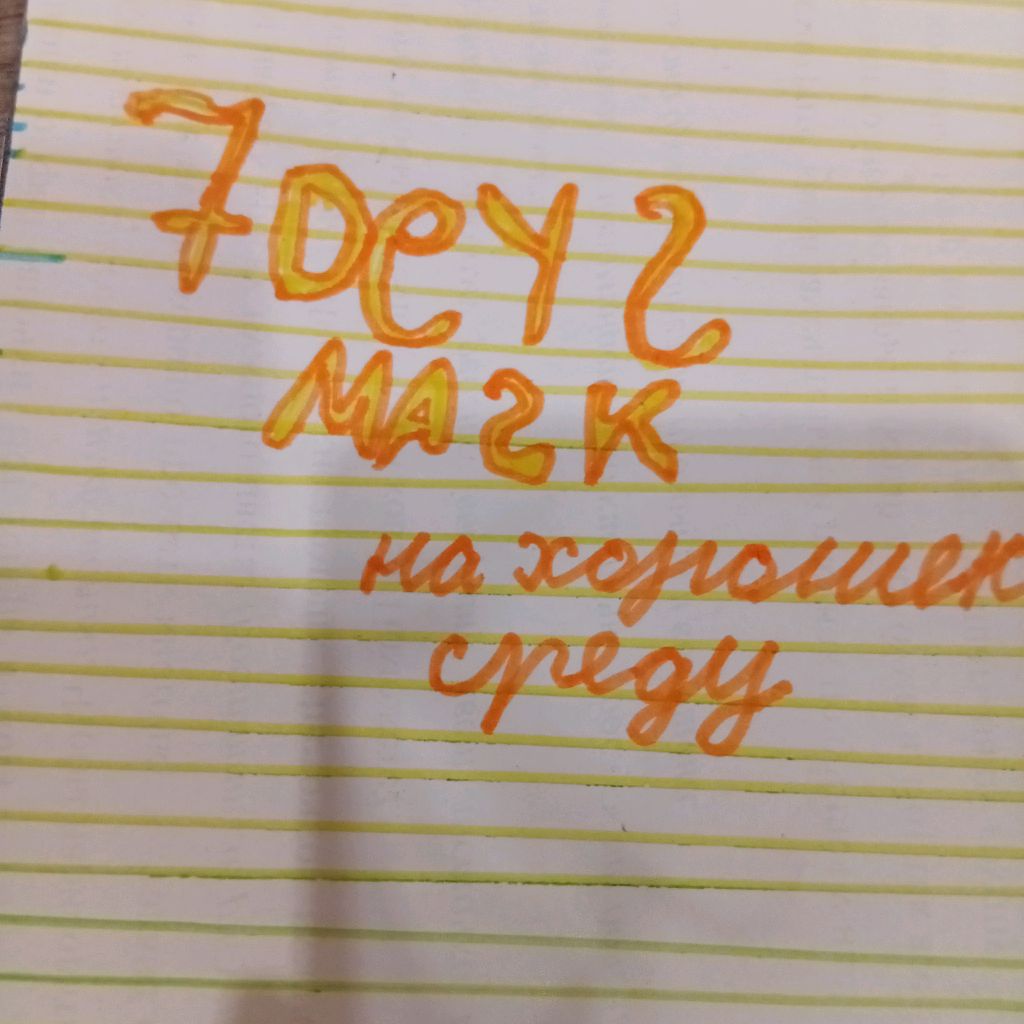 7 DeYS
MASK
на хорошек
среду